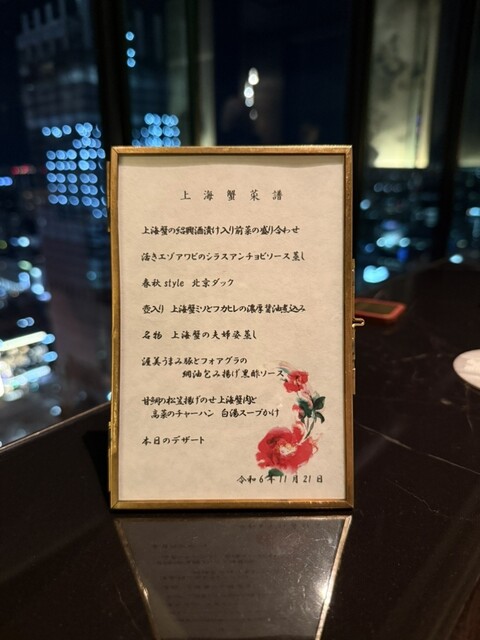 上海蟹菜譜
上海蟹の紹興酒漬け入り前菜の盛り合わせ
活きエゾアワビのシラスアンチョビソース蒸し
春秋style 北京ダック
壺入り 上海蟹ミソとフカヒレの濃厚醤油煮込み
名物 上海蟹の夫婦姿蒸し
渥美うまみ豚とフォアグラの
網油包み揚げ黒酢ソース
甘鯛の松笠揚げのせ上海蟹肉と
高菜のチャーハン 白湯スープかけ
本日のデザート
令和6年11月21日